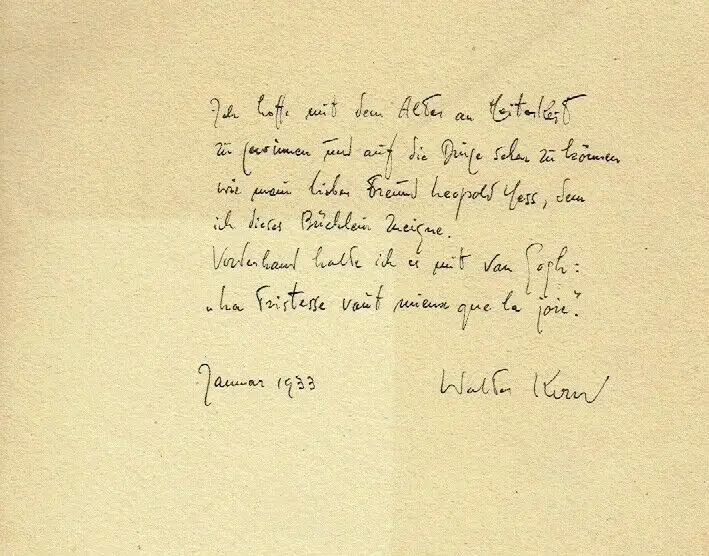 Ich hoffe mit dem Alter an Heiterkeit
zu gewinnen und auf die Dinge sehen zu können
wie mein lieber Freund Leopold Hess, dem
ich dieses Büchlein zueigne.
Vorderhand halte ich es mit Van Gogh:
„La Tristesse vaut mieux que la joie."
Januar 1933 Walter Kern